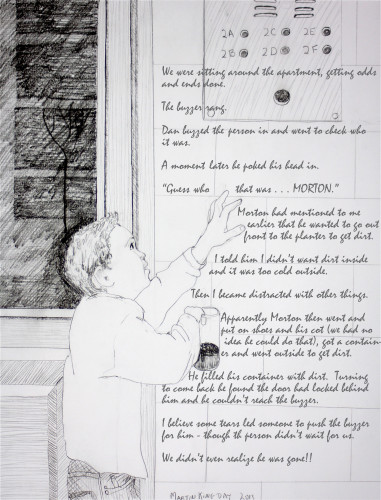 2A 2C 2E
2B 2D 2F
We were sitting around the apartment, getting odds
and ends done.
The buzzer rang.
Dan buzzed the person in and went to check who
it was.
A moment later he poked his head in.
"Guess who that was . . . MORTON."
Morton had mentioned to me
earlier that he wanted to go out
front to the planter to get dirt.
I told him I didn't want dirt inside
and it was too cold outside.
Then I became distracted with other things.
Apparently Morton then went and
put on shoes and his cot (we had no
idea he could do that), got a contain-
er and went outside to get dirt.
He filled his container with dirt. Turning
to come back he found the door had locked behind
him and he couldn't reach the buzzer.
I believe some tears led someone to push the buzzer
for him - though th person didn't wait for us.
We didn't even realize he was gone!!
MARTIN 2011